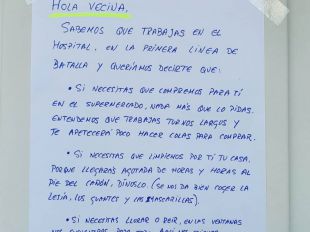 HOLA VECINA,
SABEMOS QUE TRABAJAS EN EL
HOSPITAL, EN LA PRIMERA LINEA DE
BATALLA Y QUERÍAMOS DECIRTE QUE:
• SI NECESITAS QUE COMPREMOS PARA TÍ
EN EL SUPERMERCADO, NADA MÁS QUE LO PIDAS.
ENTENDEMOS QUE TRABAJAS TURNOS LARGOS Y
TE APETECERÁ POCO HACER COLAS PARA COMPRAR.
• SI NECESITAS QUE LIMPIEMOS POR TÍ TU CASA,
PORQUE LLEGARÁS AGOTADA DE HORAS Y HORAS AL
PIE DEL CAÑÓN, DÍNOSLO (SE NOS DA BIEN COGER LA
LEJÍA, LOS GUANTES Y LAS MASCARILLAS).
• SI NECESITAS LLORAR O REIR, EN LAS VENTANAS